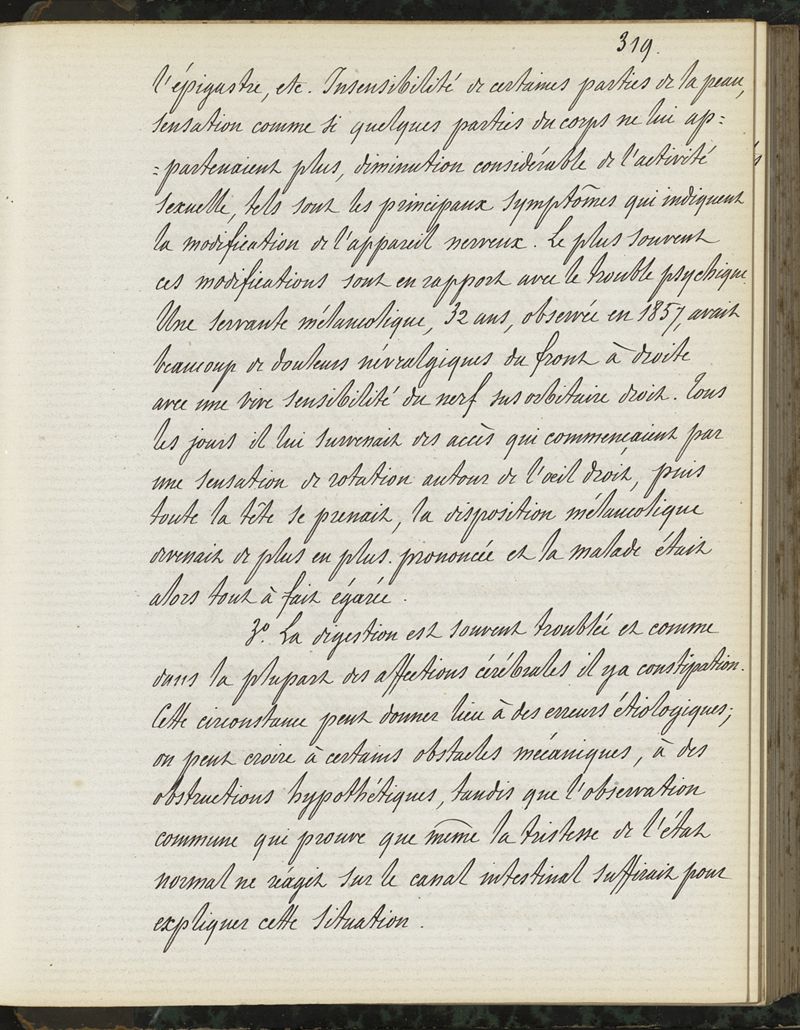 319.
l'épigastre, etc. Insensibilité de certaines parties de la peau,
sensation comme si quelques parties du corps ne lui ap=
=partenaient plus, diminution considérable de l'activité
sexuelle, tels sont les principaux symptômes qui indiquent
la modification de l'appareil nerveux. Le plus souvent
ces modifications sont en rapport avec le trouble psychique.
Une servante mélancolique, 32 ans, observée en 1857, avait
beaucoup de douleurs névralgiques du front à droite
avec une vive sensibilité du nerf susorbitaire droit. Tous
les jours il lui survenait des accès qui commençaient par
une sensation de rotation autour de l'œil droit, puis
toute la tête se prenait, la disposition mélancolique
devenait de plus en plus. prononcée et la malade était
alors tout à fait égarée.
3º. La digestion est souvent troublée et comme
dans la plupart des affections cérébrales il y a constipation.
Cette circonstance peut donner lieu à des erreurs étiologiques;
on peut croire à certains obstacles mécaniques, à des
obstructions hypothétiques, tandis que l'observation
commune qui prouve que même la tristesse de l'état
normal ne réagit sur le canal intestinal suffirait pour
expliquer cette situation.